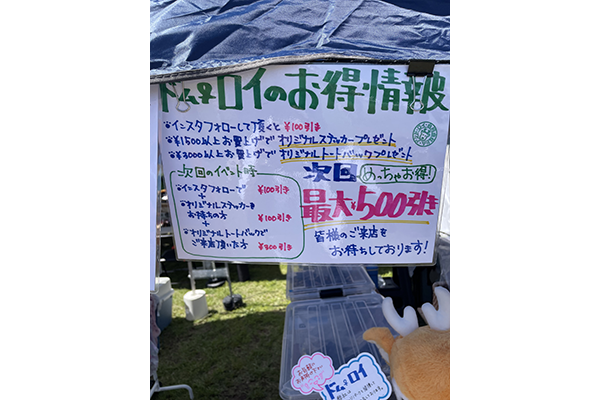 ドム♀ロイのお得情報
インスタフォローして頂くと ¥100引き
¥1500以上お買上げで オリジナルステッカープレゼント
¥3000以上お買上げで オリジナルトートバックプレゼント
次回のイベント時
インスタフォローで ¥100引き
+
オリジナルステッカーを
お持ちの方 ¥100引き
+
オリジナルトートバックで
ご来店頂いた方 ¥300引き
次回 めっちゃお得!
最大¥500引き
皆様のご来店を
お待ちしております!
ドム♀ロイ